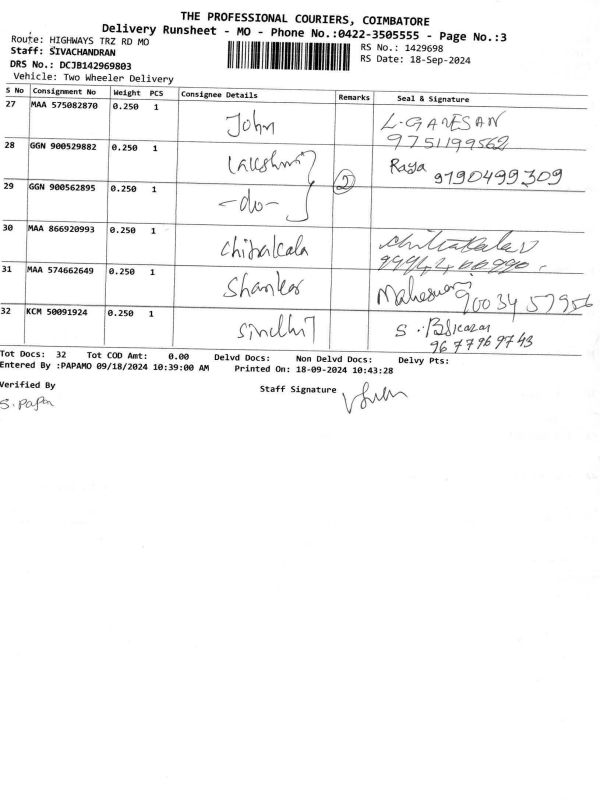 THE PROFESSIONAL COURIERS, COIMBATORE
Delivery Runsheet - MO - Phone No.:0422-3505555 - Page No.:3
Route: HIGHWAYS TRZ RD MO
RS No.: 1429698
Staff: SIVACHANDRAN
RS Date: 18-Sep-2024
DRS No.: DCJB142969803
Vehicle: Two Wheeler Delivery
S No Consignment No Weight PCS Consignee Details Remarks Seal & Signature
27 MAA 575082870 0.250 1 John L. GANESAN
9751199562
28 GGN 900529882 0.250 1 Lakshmi Raja
2 9190499309
29 GGN 900562895 0.250 1 -do-
30 MAA 866920993 0.250 1 Chitralcala
31 MAA 574662649 0.250 1 Shankar Maheswari
9003457956
32 KCM 50091924 0.250 1 Sindhi S.
9677969743
Tot Docs: 32 Tot COD Amt: 0.00 Delvd Docs: Non Delvd Docs: Delvy Pts:
Entered By :PAPAMO 09/18/2024 10:39:00 AM Printed On: 18-09-2024 10:43:28
Verified By Staff Signature
S. Papa